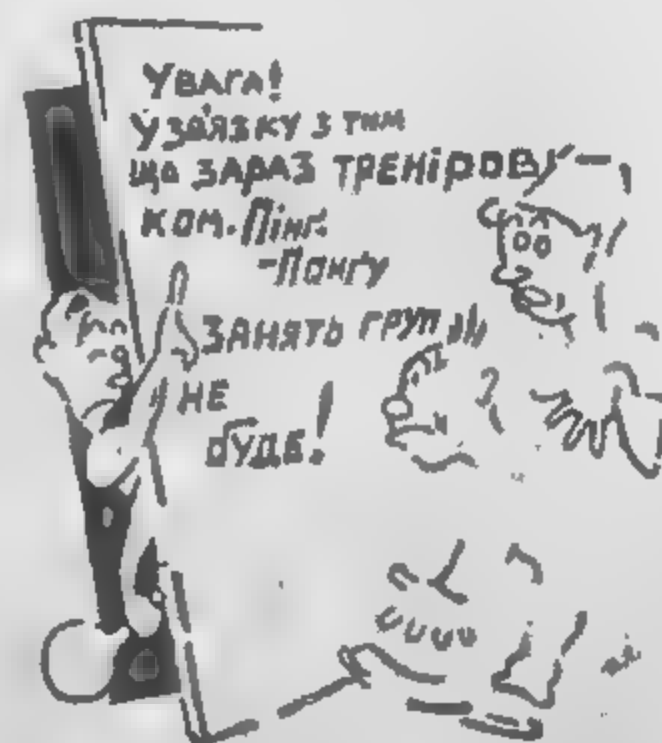 Увага!
У зв'язку з тим
що зараз треніров
ком. Пінг-
-Понгу
занять груп
не
буде!